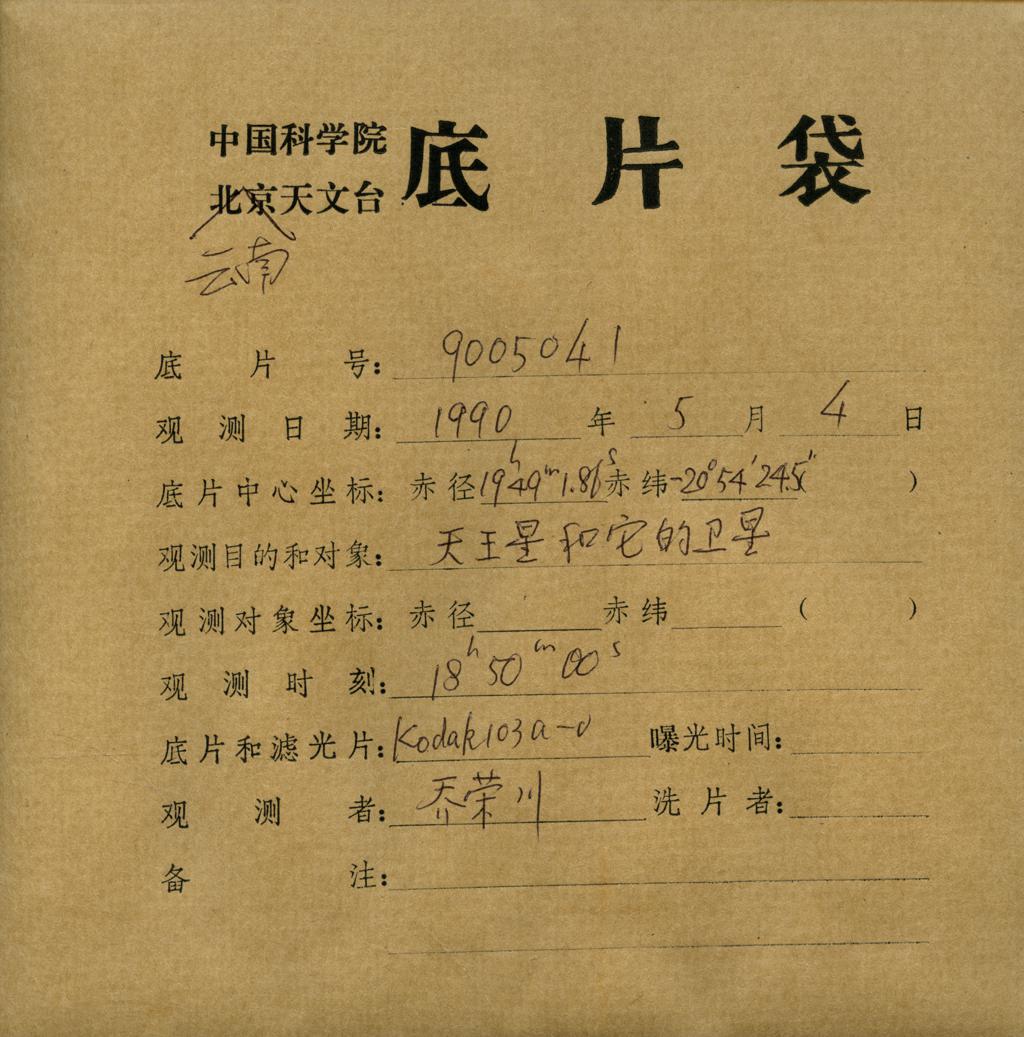 中国科学院
北京天文台 底片袋
云南
底片号：9005041
观测日期：1990年5月4日
底片中心坐标：赤径19h49m1.86s赤纬-20°54′24.5″( )
观测目的和对象：天王星和它的卫星
观测对象坐标：赤径 赤纬 ( )
观测时刻：18h50m00s
底片和滤光片：Kodak103a-0 曝光时间：
观测者：乔荣川 洗片者：
备注：